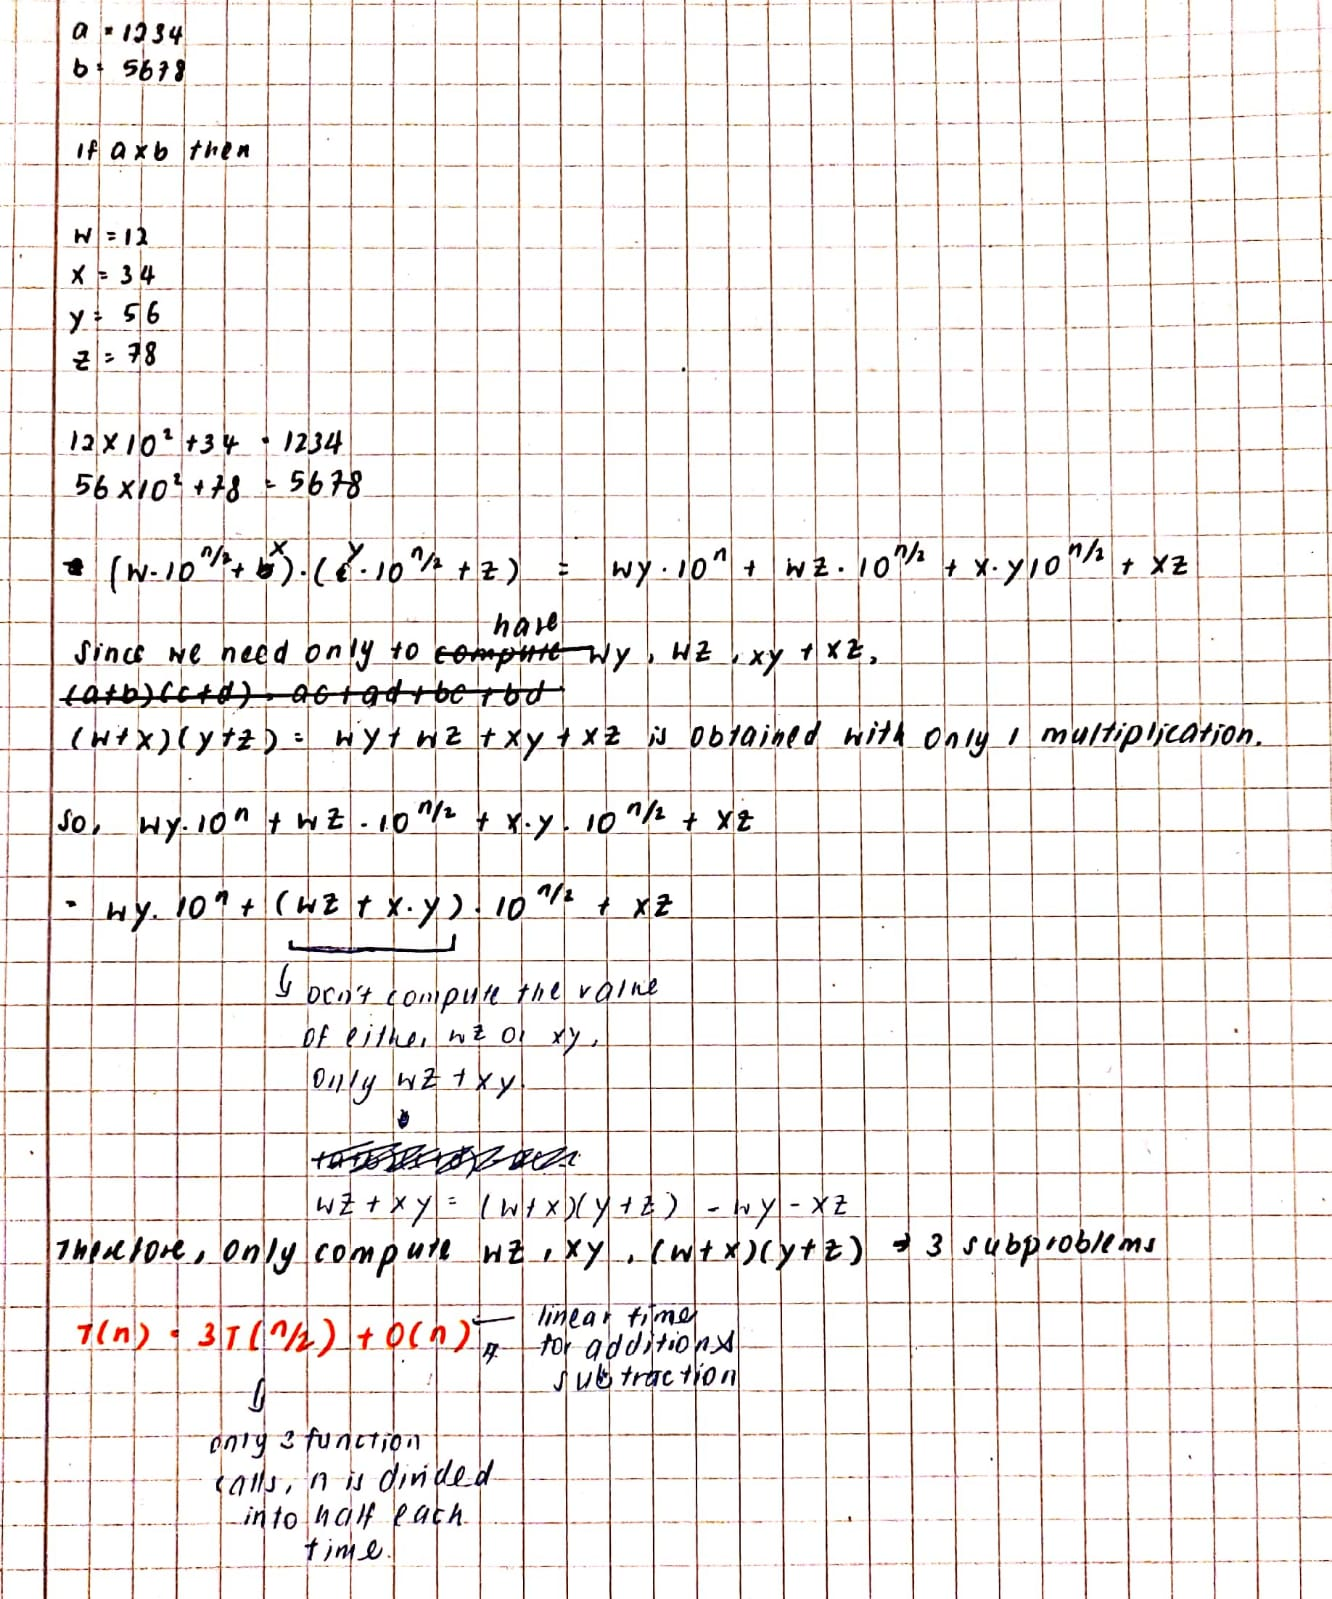 a = 1234
b = 5678
if a x b then
W = 12
X = 34
y = 56
z = 78
12 x 10² + 34 = 1234
56 x 10² + 78 = 5678
(W·10^n/2 + x)·(y·10^n/2 + z) = wy·10^n + wz·10^n/2 + x·y10^n/2 + xz
have
Since we need only to compute wy, wz, xy + xz,
(a+b)(c+d) = ac + ad + bc + bd
(w+x)(y+z) = wy + wz + xy + xz is obtained with only 1 multiplication.
So, wy·10^n + wz·10^n/2 + x·y·10^n/2 + xz
= wy·10^n + (wz + x·y)·10^n/2 + xz
↳ Don't compute the value
of either wz or xy,
only wz + xy.
wz + xy = (w+x)(y+z) - wy - xz
Therefore, only compute wz, xy, (w+x)(y+z) → 3 subproblems
T(n) = 3T(n/2) + O(n) ← linear time
for additions
subtraction
only 3 function
calls, n is divided
into half each
time.